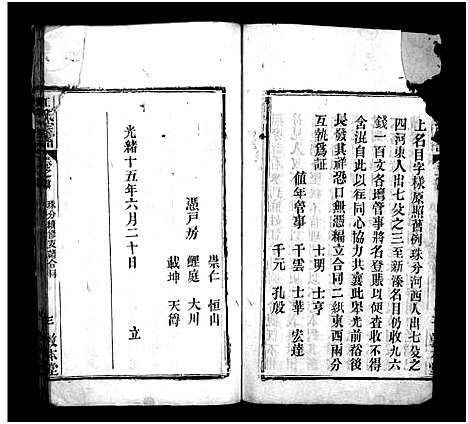 上名目字樣原照舊例珠分河西人出七股之
四河東人出七股之三至新添名目仍收九六
錢一百文各堪管事將名登賬以便查收不得
含混自此以往同心協力共襄此舉光前裕後
長發其祥恐口無憑編立合同二紙東西兩分
互執爲証
值年管事
士明 士亨
干雲 士華 宏達
千元 孔殷
憑戶房
崇仁 恒山
鯉庭 大川
載坤 天爵
光緒十五年六月二十日 立
珠分續修支譜合同
三
敦本堂